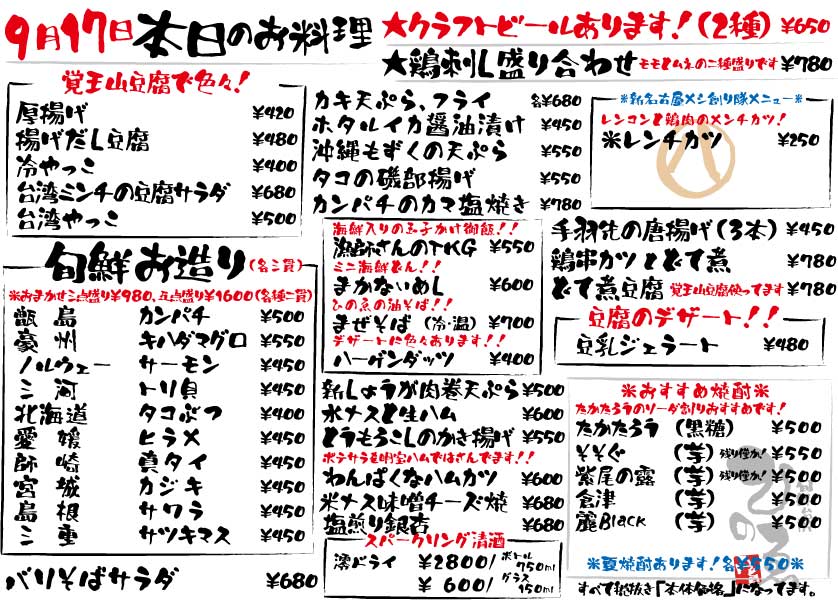 9月17日 本日のお料理
★クラフトビールあります！(2種) ¥650
★鶏刺し盛り合わせ モモとムネの二種盛りです ¥780
覚王山豆腐で色々！
厚揚げ ¥420
揚げだし豆腐 ¥480
冷やっこ ¥400
台湾ミンチの豆腐サラダ ¥680
台湾やっこ ¥500
旬鮮お造り (各三貫)
※おまかせ三点盛り¥980、五点盛り¥1600(各種二貫)
甑島 カンパチ ¥500
豪州 キハダマグロ ¥550
ノルウェー サーモン ¥450
三河 トリ貝 ¥450
北海道 タコぶつ ¥400
愛媛 ヒラメ ¥450
師崎 真タイ ¥450
宮城 カジキ ¥450
島根 サワラ ¥450
三重 サツキマス ¥450
バリそばサラダ ¥680
カキ天ぷら、フライ 各¥680
ホタルイカ醤油漬け ¥450
沖縄もずくの天ぷら ¥550
タコの磯部揚げ ¥550
カンパチのカマ塩焼き ¥780
海鮮入りの玉子かけ御飯！！
漁師さんのTKG ¥550
ミニ海鮮どん！！
まかないめし ¥600
ひの魚の油そば！！
まぜそば (冷・温) ¥700
デザートに色々あります！！
ハーゲンダッツ ¥400
新しょうが肉巻天ぷら ¥500
水ナスと生ハム ¥600
とうもろこしのかき揚げ ¥550
ポテサラを明宝ハムではさんでます！！
わんぱくなハムカツ ¥600
米ナス味噌チーズ焼 ¥680
塩煎り銀杏 ¥680
スパークリング清酒
澪ドライ ¥2800/ボトル750ml
¥600/グラス150ml
※新名古屋メシ創り隊メニュー※
レンコンと鶏肉のメンチカツ！
※レンチカツ ¥250
手羽先の唐揚げ(3本) ¥450
鶏串カツとどて煮 ¥780
どて煮豆腐 覚王山豆腐使ってます ¥780
豆腐のデザート！！
豆乳ジェラート ¥480
※おすすめ焼酎※
たかたろうのソーダ割りおすすめです！
たかたろう (黒糖) ¥500
そそぐ (芋) 残り僅か！ ¥550
紫尾の露 (芋) 残り僅か！ ¥500
倉津 (芋) ¥500
麗Black (芋) ¥500
※夏焼酎あります！各¥550※
すべて税抜き「本体価格」になってます。